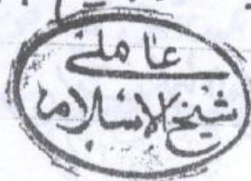 عاملی
شیخ‌الاسلام